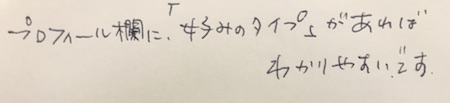 プロフィール欄に、「好みのタイプ」があれば
わかりやすいです。